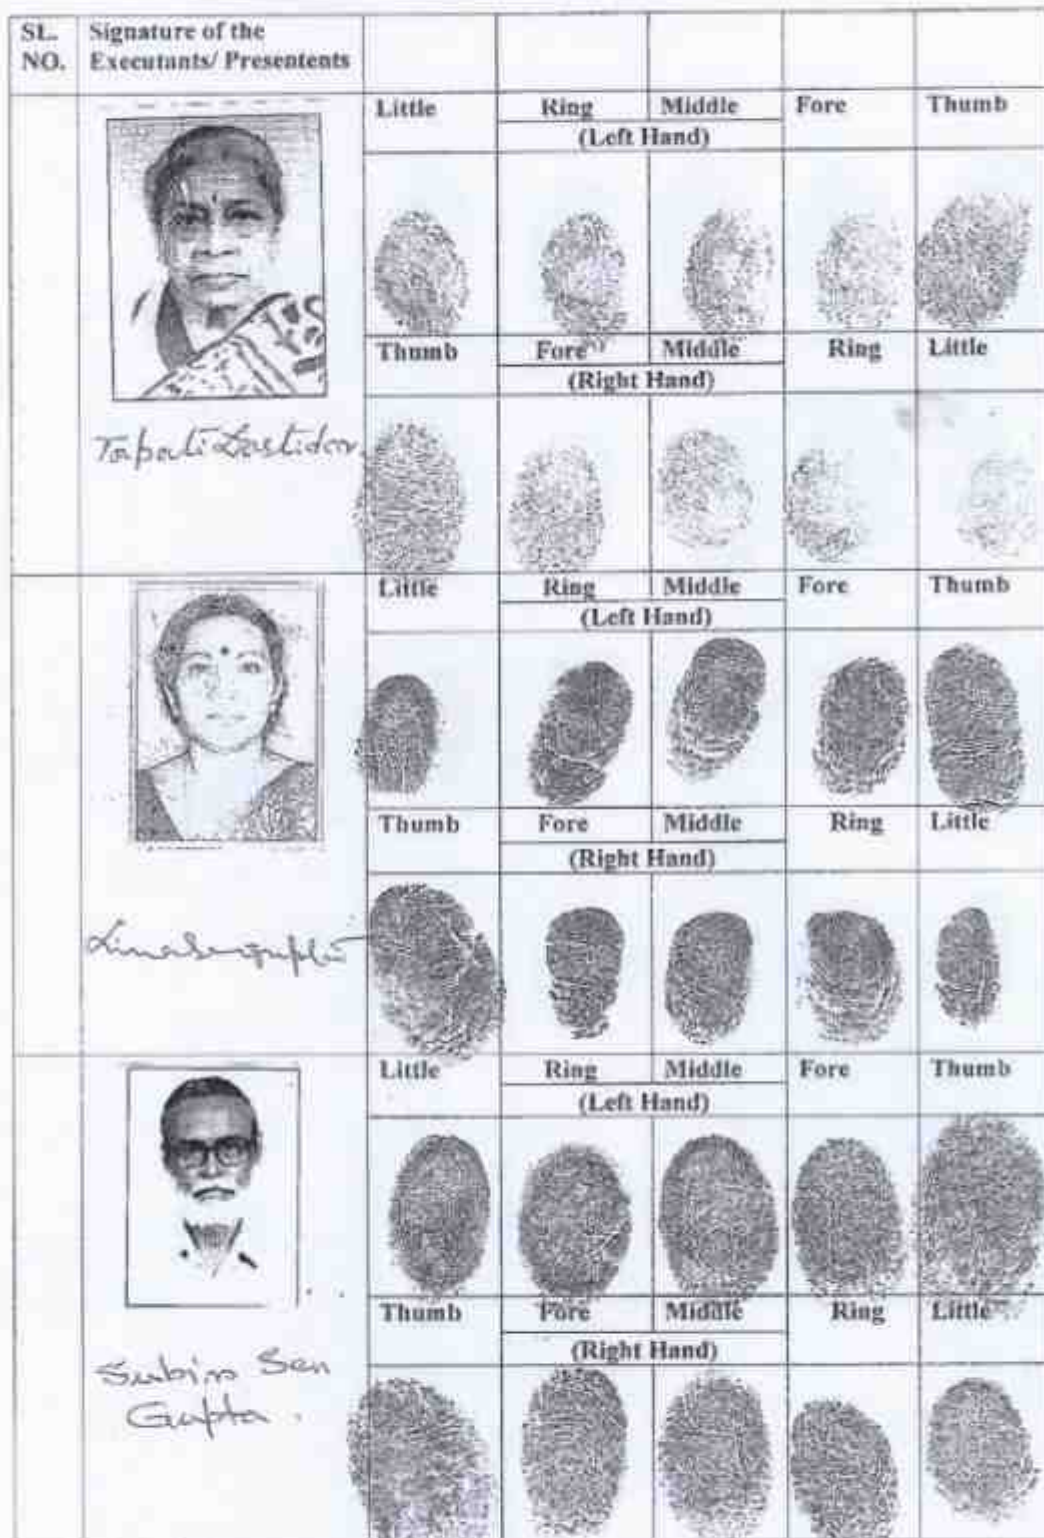 SL. NO.
Signature of the Executants/ Presentents
Little Ring Middle Fore Thumb
(Left Hand)
Thumb Fore Middle Ring Little
(Right Hand)
Tapati Dastidar
Little Ring Middle Fore Thumb
(Left Hand)
Thumb Fore Middle Ring Little
(Right Hand)
Lina Sengupta
Little Ring Middle Fore Thumb
(Left Hand)
Thumb Fore Middle Ring Little
(Right Hand)
Subir Sen
Gupta.